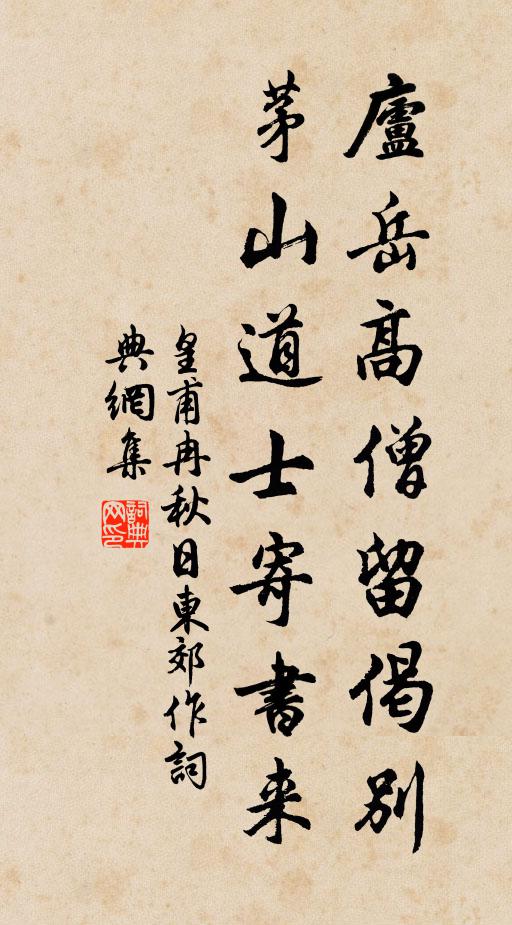 廬岳高僧留偈別
茅山道士寄書来
皇甫冉秋日東郊作詞
典網集
詞典
网印